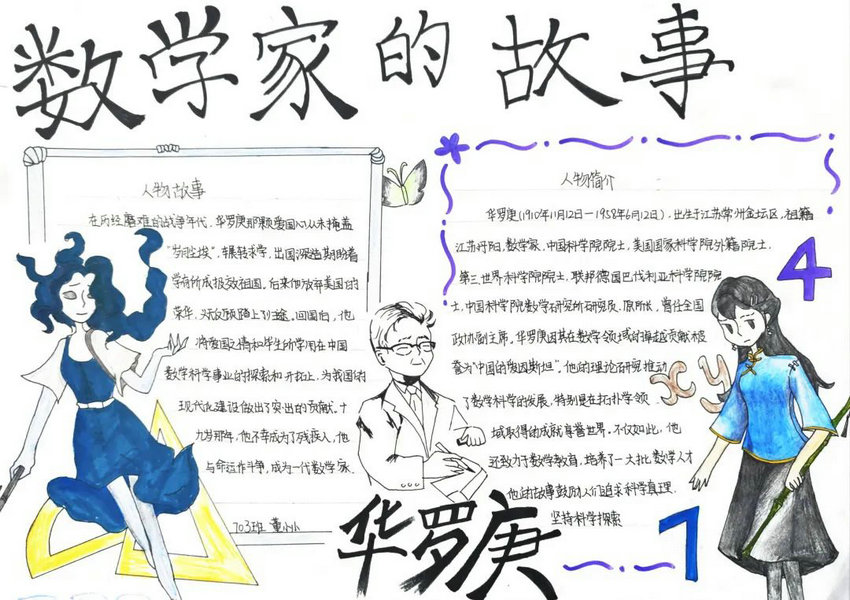 数学家的故事
人物故事
在历经磨难的战争年代，华罗庚那颗爱国心从未掩盖
辗转求学，出国深造期盼着
学有所成报效祖国。后来他放弃美国的
荣华，义无反顾踏上归途。回国后，他
将爱国之情和毕生所学用在中国
数学科学事业的探索和开拓上，为我国的
现代化建设做出了突出的贡献。十
九岁那年，他不幸成为了残疾人，他
与命运作斗争，成为一代数学家。
703班
人物简介
华罗庚(1910年11月12日一1958年6月12日)，出生于江苏常州金坛区，祖籍
江苏丹阳，数学家，中国科学院院士，美国国家科学院外籍院士，
第三世界科学院院士，联邦德国巴伐利亚科学院院
士，中国科学院数学研究所研究员、原所长，曾任全国
政协副主席。华罗庚因其在数学领域的卓越贡献被
誉为“中国的爱因斯坦”。他的理论研究推动
了数学科学的发展，特别是在拓扑学领
域取得的成就享誉世界。不仅如此，他
还致力于数学教育，培养了一大批数学人才
他的故事鼓励人们追求科学真理，
坚持科学探索
4
x y
华罗庚
1